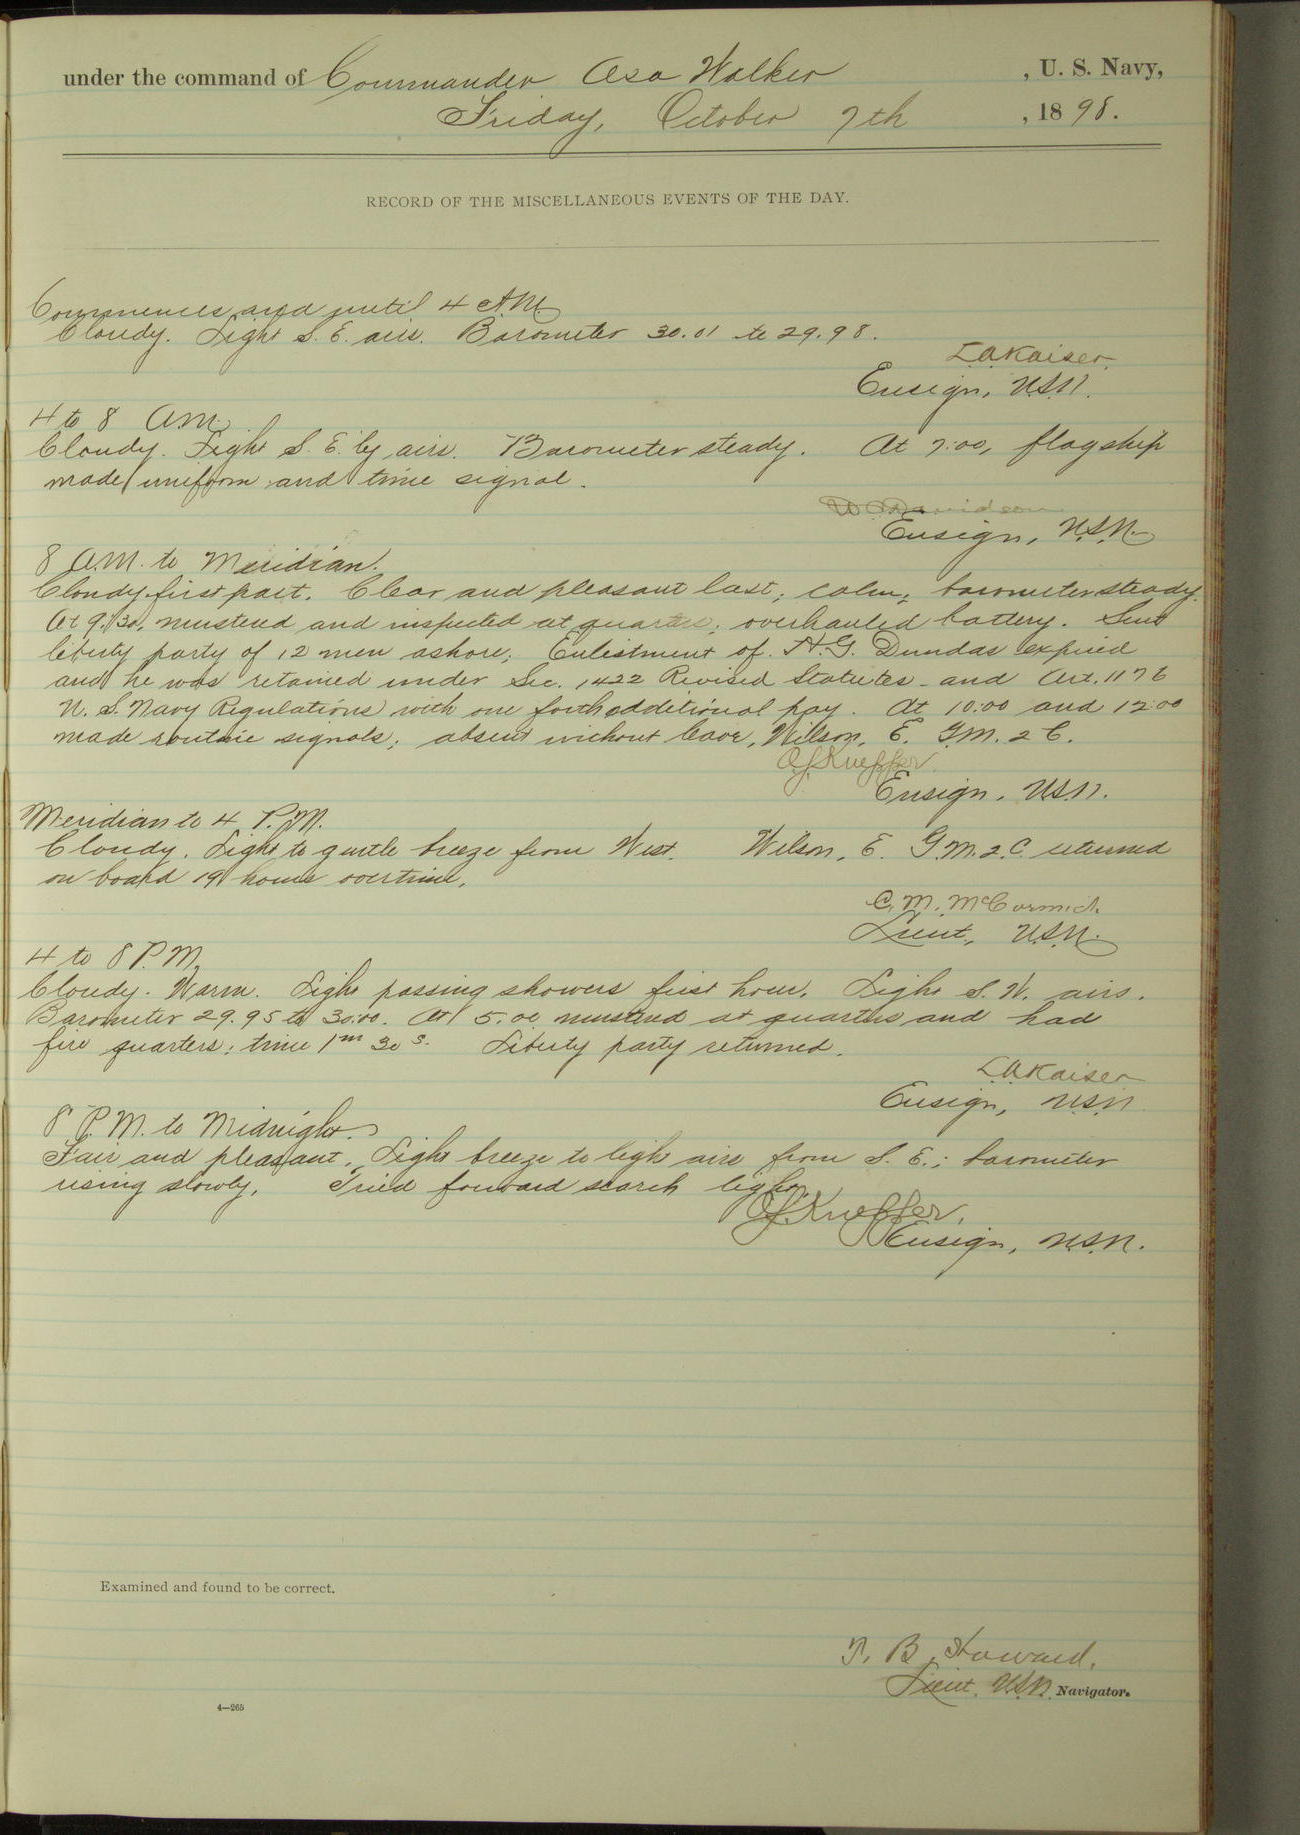 under the command of Commander Asa Walker , U. S. Navy,
Friday, October 7th , 1898.
RECORD OF THE MISCELLANEOUS EVENTS OF THE DAY.
Commences and until 4 A.M.
Cloudy. Light S. E. airs. Barometer 30.01 to 29.98.
L.A. Kaiser.
Ensign, U.S.N.
4 to 8 A.M.
Cloudy. Light S. E. by airs. Barometer steady. At 7:00, flagship
made uniform and time signal.
W. C. Davidson
Ensign, U.S.N.
8 A.M. to Meridian.
Cloudy first part. Clear and pleasant last; calm; barometer steady.
At 9.30, mustered and inspected at quarters; overhauled battery. Sent
liberty party of 12 men ashore; Enlistment of H. G. Dundas expired
and he was retained under Sec. 1422 Revised Statutes and Art. 1176
U. S. Navy Regulations with one forth additional pay. At 10:00 and 12:00
made routine signals; absent without leave, Wilson, E. G.M. 2 C.
Ensign, U.S.N.
Meridian to 4 P.M.
Cloudy. Light to gentle breeze from West. Wilson, E. G.M. 2. C. returned
on board 19 hours overtime.
C. M. McCormick
Lieut., U.S.N.
4 to 8 P.M.
Cloudy. Warm. Light passing showers first hour. Light S. W. airs.
Barometer 29.95 to 30.00. At 5.00 mustered at quarters and had
fire quarters; time 1m 30s. Liberty party returned.
L.A. Kaiser
Ensign, U.S.N.
8 P.M. to Midnight.
Fair and pleasant. Light breeze to light airs from S. E.; barometer
rising slowly. Tried forward search light.
Ensign, U.S.N.
Examined and found to be correct.
T. B. Howard,
Lieut. U.S.N. Navigator.
4—265